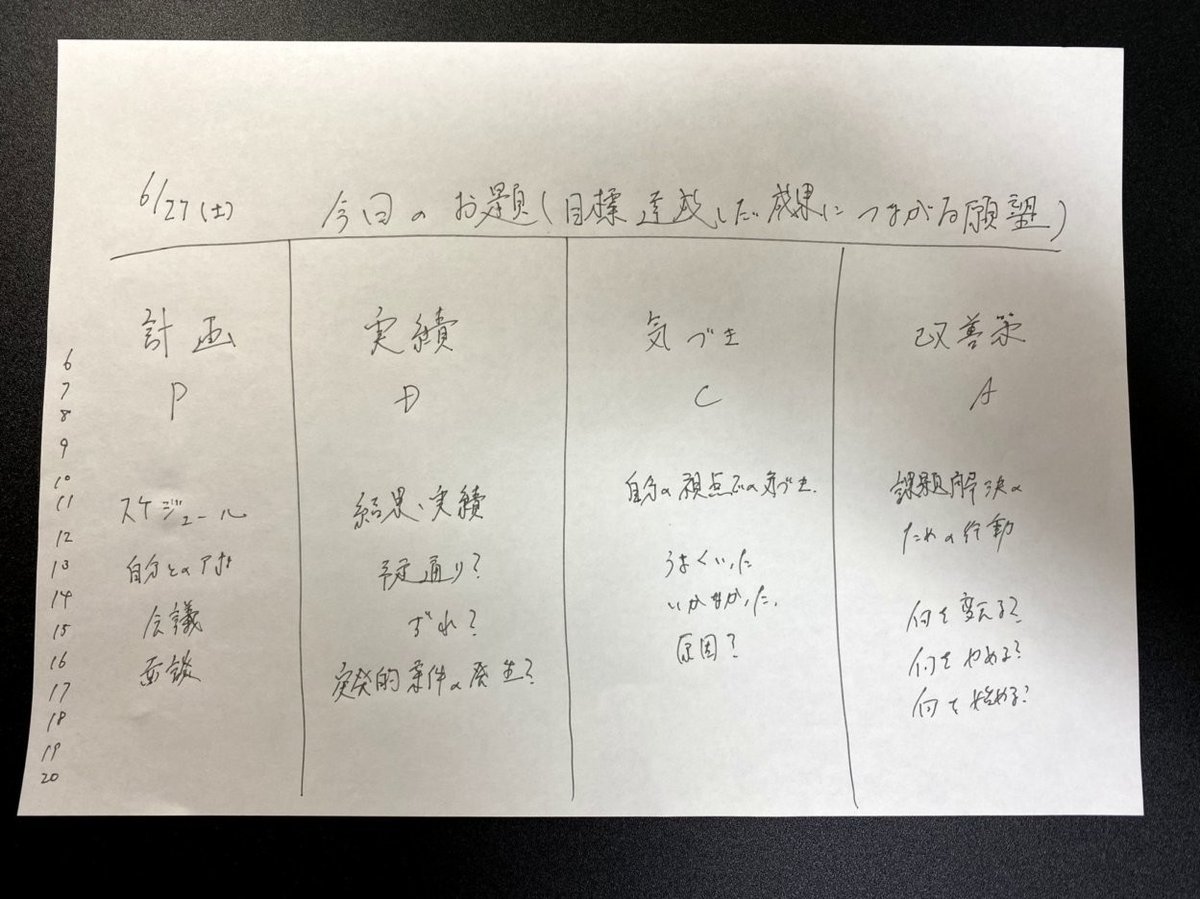 6/27(土)
今回のお題(目標達成した成果につながる願望)
6
7
8
9
10
11
12
13
14
15
16
17
18
19
20
計画
P
スケジュール
自分とのアポ
会議
面談
実績
D
結果、実績
予定通り?
ずれ?
突発的案件の発生?
気づき
C
自分の視点での気づき
うまくいった
いかなかった
原因?
改善策
A
課題解決の
ための行動
何を変える?
何をやめる?
何を始める?